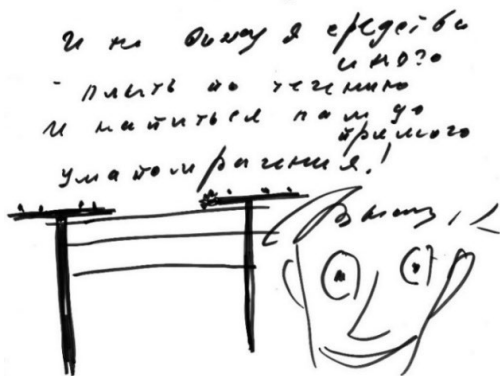 И не вижу я средства
иного
плыть по течению
и напиться нам до
прямого
умапомрачения!